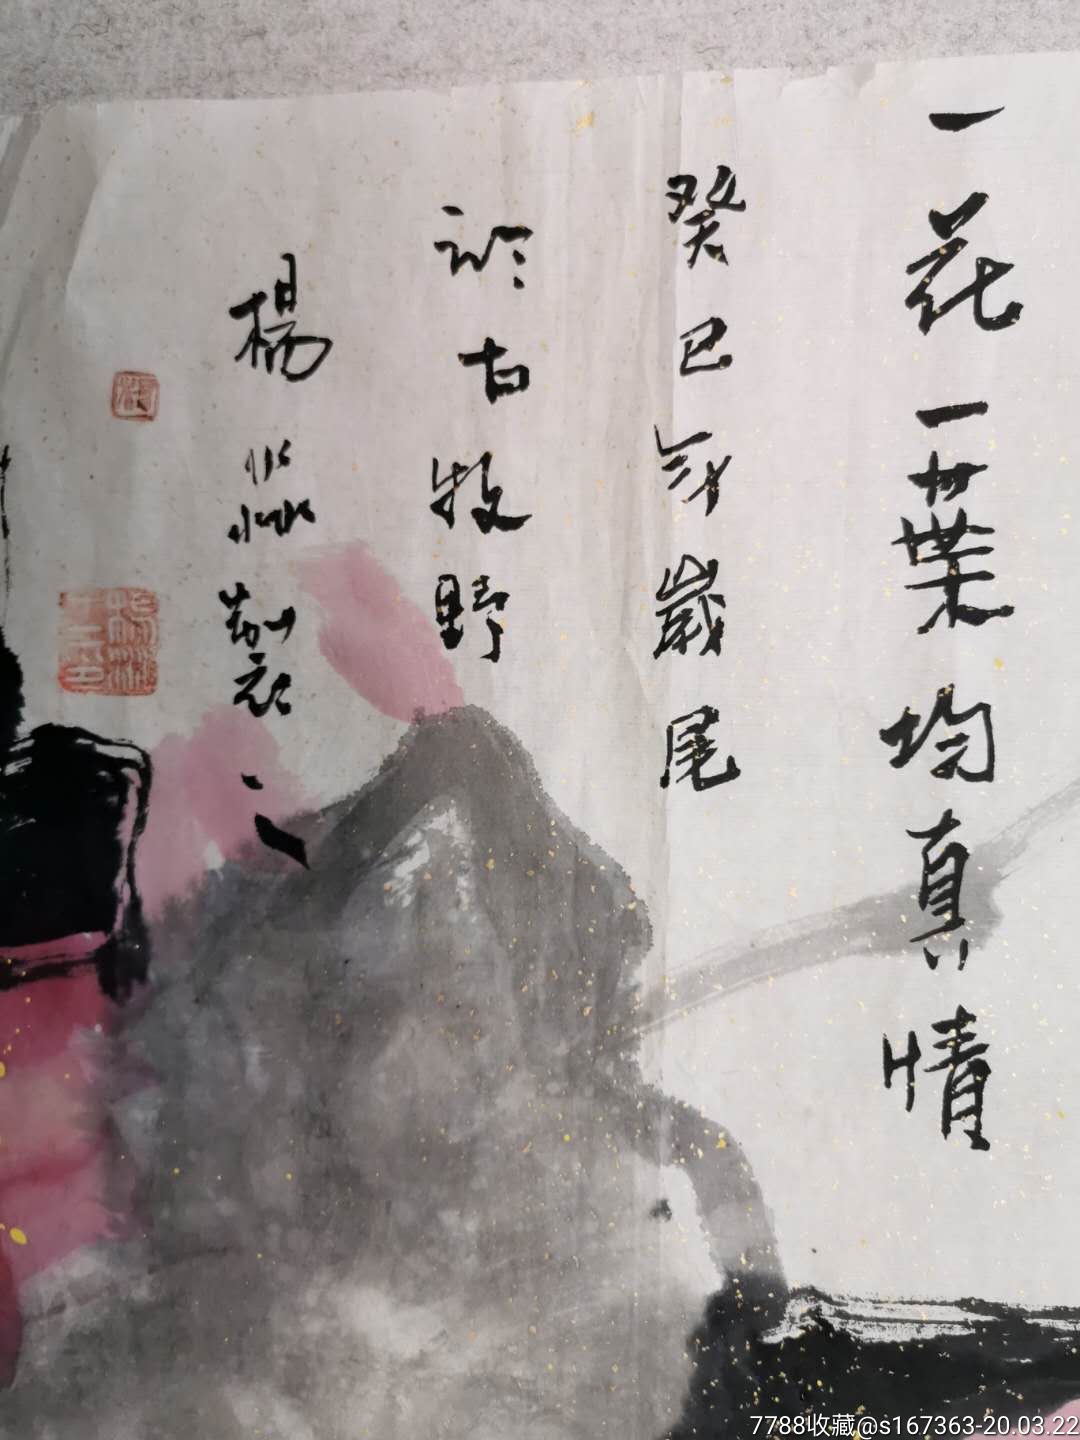 一花一葉均真情
癸巳年歲尾
於古牧野
楊淼製之
7788收藏@s167363-20.03.22